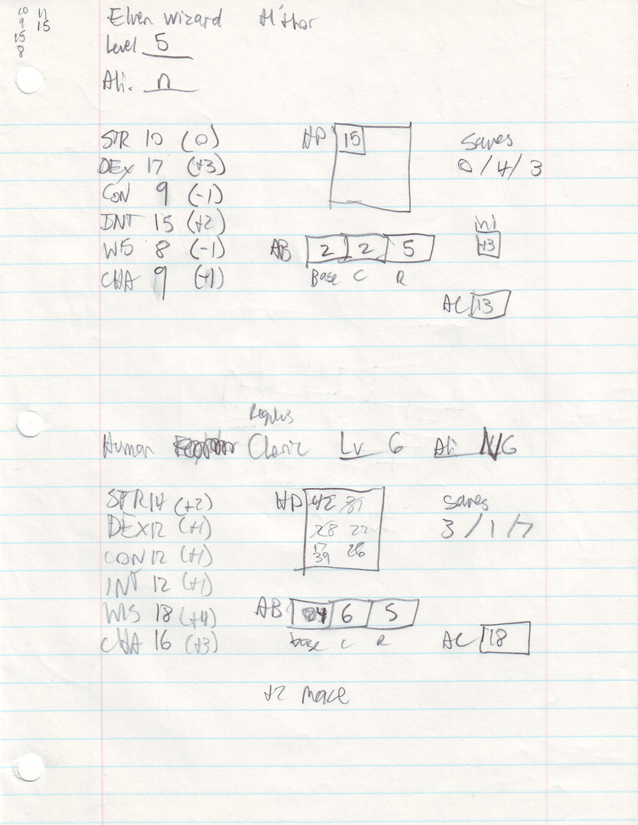 10 11
9 15
15
8
Elven wizard M'thor
Level 5
Ali. n
STR 10 (0)
DEX 17 (+3)
CON 9 (-1)
INT 15 (+2)
WIS 8 (-1)
CHA 9 (-1)
HP 15
Saves
0/4/3
AB 2 2 5
Base C R
ini
+3
AC 13
Regulus
Human Cleric Lv 6 Ali NG
STR 14 (+2)
DEX 12 (+1)
CON 12 (+1)
INT 12 (+1)
WIS 18 (+4)
CHA 16 (+3)
HP 42 31
28 22
17 26
39
Saves
3/1/7
AB 4 6 5
base C R
AC 18
+2 mace